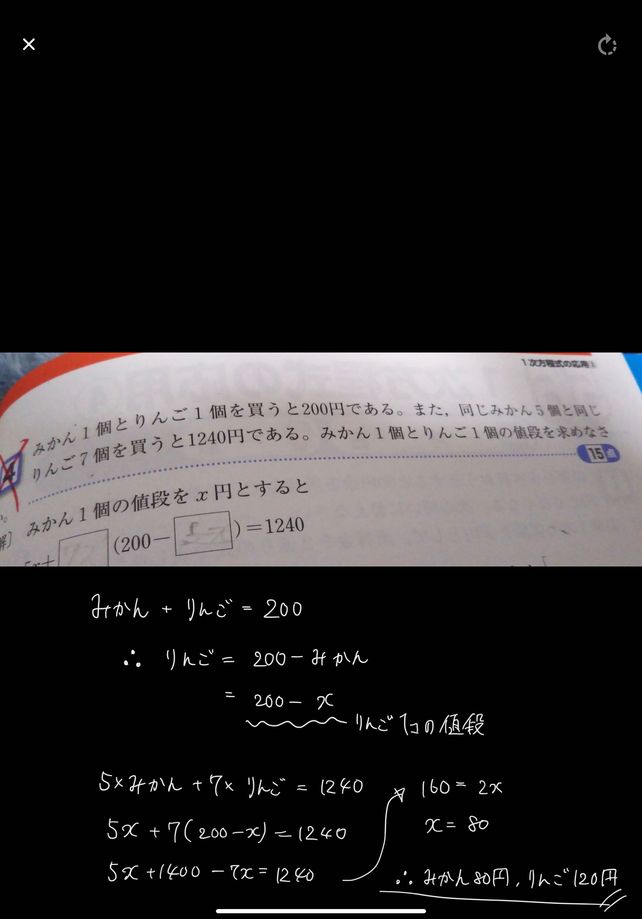 1次方程式の応用
4
みかん1個とりんご1個を買うと200円である。また，同じみかん5個と同じ
りんご7個を買うと1240円である。みかん1個とりんご1個の値段を求めなさ
15点
解〕
みかん1個の値段をx円とすると
5x+ (200− )=1240
みかん + りんご = 200
∴ りんご = 200 − みかん
= 200 − x
りんご1コの値段
5×みかん + 7×りんご = 1240
5x + 7(200−x) = 1240
5x + 1400 − 7x = 1240
160 = 2x
x = 80
∴ みかん80円, りんご120円